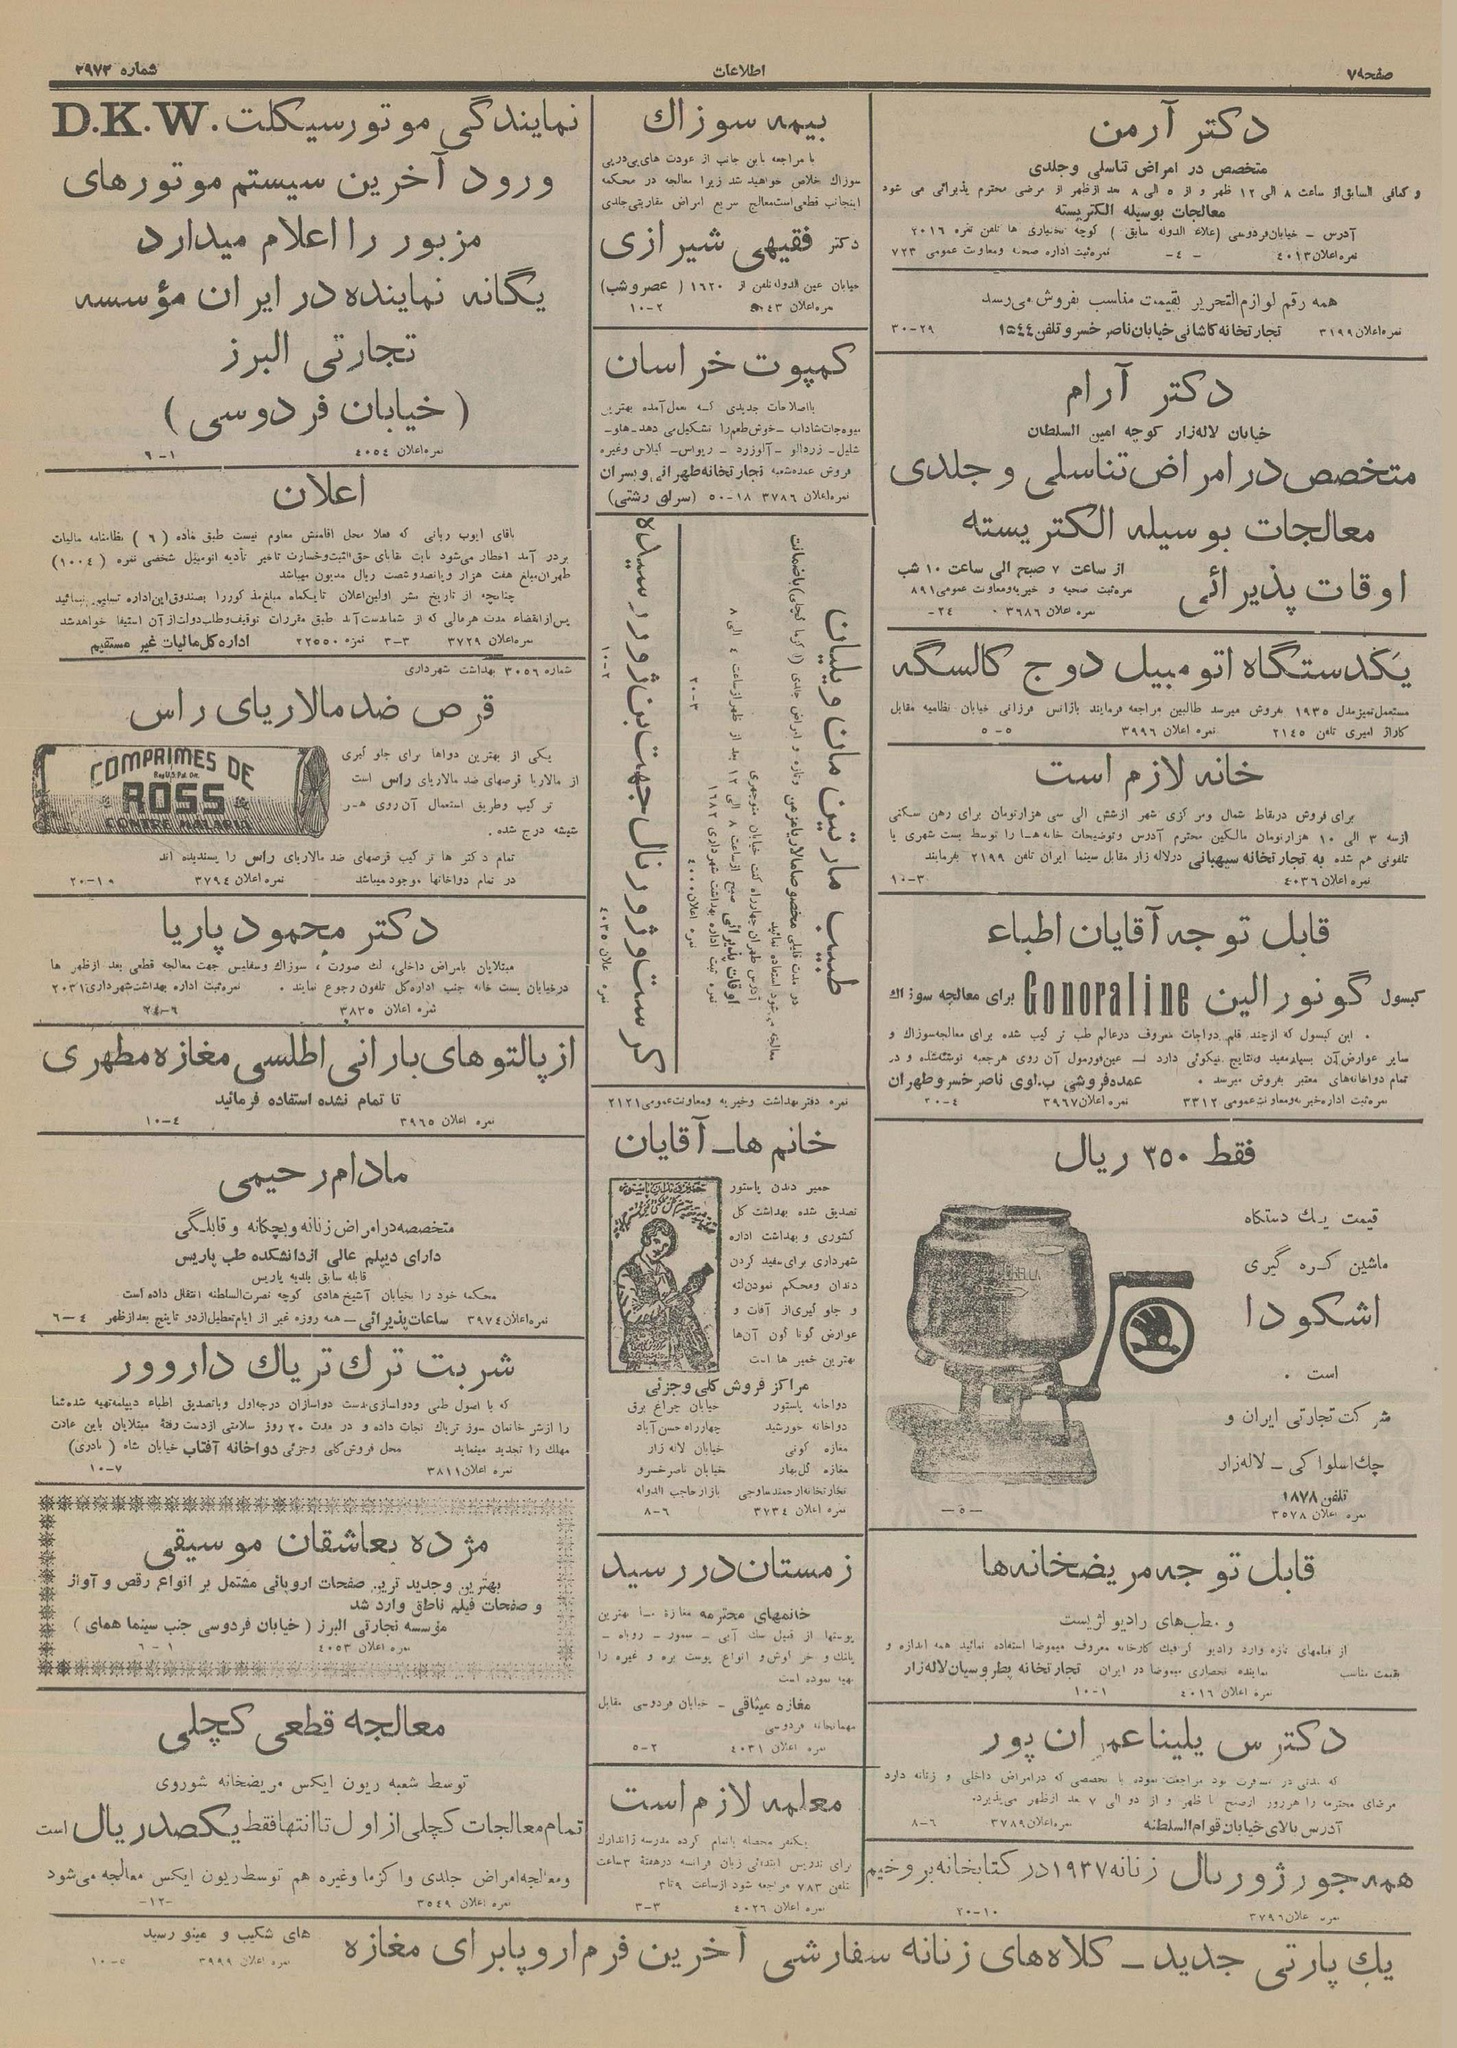 صفحه ۷
اطلاعات
شماره ۳۹۷۳
دکتر آرمن
متخصص در امراض تناسلی و جلدی
و کمافی السابق از ساعت ۸ الی ۱۲ ظهر و از ۵ الی ۸ بعد از ظهر از مرضی محترم پذیرائی می شود
معالجات بوسیله الکتریسته
آدرس - خیابان فردوسی (علاء الدوله سابق) کوچه بختیاری ها تلفن نمره ۲۰۱۶
نمره اعلان ۴۰۱۳ -۴- نمره ثبت اداره صحیه و معاونت عمومی ۷۲۳
همه رقم لوازم التحریر بقیمت مناسب بفروش می رسد
نمره اعلان ۳۱۹۹ تجارتخانه کاشانی خیابان ناصر خسرو تلفن ۱۵۴۴ ۲۹-۳۰
دکتر آرام
خیابان لاله زار کوچه امین السلطان
متخصص در امراض تناسلی و جلدی
معالجات بوسیله الکتریسته
اوقات پذیرائی
از ساعت ۷ صبح الی ساعت ۱۰ شب
نمره ثبت صحیه و خیریه و معاونت عمومی ۸۹۱
نمره اعلان ۳۶۸۶ ۲۴-
یکدستگاه اتومبیل دوج کالسگه
مستعمل تمیز مدل ۱۹۳۵ بفروش میرسد طالبین مراجعه فرمایند باژانس فرزانی خیابان نظامیه مقابل
گاراژ امیری تلفن ۲۱۴۵ نمره اعلان ۳۹۹۶ ۵-۵
خانه لازم است
برای فروش در نقاط شمال و مرکزی شهر از شش الی سی هزار تومان برای رهن سکنی
از سه ۳ الی ۱۰ هزار تومان مالکین محترم آدرس و توضیحات خانه ها را توسط پست شهری یا
تلفونی هم شده به تجارتخانه سپهبانی در لاله زار مقابل سینما ایران تلفن ۲۱۹۹ بفرمایند
نمره اعلان ۴۰۳۶ ۳-۱۰
قابل توجه آقایان اطباء
کپسول گونورالین Gonoraline برای معالجه سوزاک
این کپسول که از چند قلم دواجات معروف در عالم طب ترکیب شده برای معالجه سوزاک و
سایر عوارض آن بسیار مفید و نتایج نیکوئی دارد - عین فورمول آن روی هر جعبه نوشته شده و در
تمام دواخانه های معتبر بفروش میرسد . عمده فروشی ب.لوی ناصر خسرو طهران
نمره ثبت اداره خیریه و معاونت عمومی ۳۳۱۲ نمره اعلان ۳۹۶۷ ۴-۲۰
فقط ۳۵۰ ریال
قیمت یک دستگاه
ماشین کره گیری
اشکودا
است .
شرکت تجارتی ایران و
چک اسلواکی - لاله زار
تلفن ۱۸۷۸
نمره اعلان ۳۵۷۸ -۵-
قابل توجه مریضخانه ها
و مطب های رادیو لژیست
از فیلمهای تازه وارد رادیو گرافیک کارخانه معروف میموضا استفاده نمائید همه اندازه و
بقیمت مناسب نماینده انحصاری میموضا در ایران تجارتخانه پطروسیان لاله زار
نمره اعلان ۴۰۱۶ ۱-۱۰
دکترس یلینا عمران پور
که مدتی در مسافرت بود مراجعت نموده با تخصصی که در امراض داخلی و زنانه دارد
مرضای محترمه را هر روز از صبح تا ظهر و از دو الی ۷ بعد از ظهر می پذیرد.
آدرس بالای خیابان قوام السلطنه نمره اعلان ۳۷۸۹ ۶-۸
همه جور ژورنال زنانه ۱۹۳۷ در کتابخانه بروخیم
نمره اعلان ۳۷۹۶ ۱۰-۲۰
بیمه سوزاک
با مراجعه باین جانب از عودت های پی در پی
سوزاک خلاص خواهید شد زیرا معالجه در محکمه
اینجانب قطعی است معالج سریع امراض مقاربتی جلدی
دکتر فقیهی شیرازی
خیابان عین الدوله تلفن از ۱۶۲۰ (عصر و شب)
نمره اعلان ۲-۱۰
کمپوت خراسان
با اصلاحات جدیدی که بعمل آمده بهترین
میوه جات شاداب - خوش طعم را تشکیل می دهد - هلو -
شلیل - زردالو - آلوزرد - ریواس - گیلاس وغیره
فروش عمده شعبه تجارتخانه طهرانی و پسران
نمره اعلان ۳۷۸۶ ۱۸-۵۰ (سرای رشتی)
طبیب مارتین مان ویلیان
در مدت قلیلی مخصوصا مالاریا مزمن و تازه و امراض جلدی (اگزما کچلی) با ضمانت
معالجه می شود استفاده نمائید
آدرس طهران چهارراه کنت خیابان منوچهری
اوقات پذیرائی صبح از ساعت ۸ الی ۱۲ بعد از ظهر از ساعت ۴ الی ۸
نمره ثبت اداره بهداشت شهرداری ۱۶۸۲
نمره اعلان ۴۰۰۰ ۳-۲۰
کرست و ژورنال جهت بن ژور رسیده
نمره اعلان ۴۰۳۵ ۲-۱۰
نمره دفتر بهداشت و خیریه و معاونت عمومی ۲۱۲۱
خانم ها - آقایان
خمیر دندان پاستور
تصدیق شده بهداشت کل
کشوری و بهداشت اداره
شهرداری برای سفید کردن
دندان و محکم نمودن لثه
و جلوگیری از آفات و
عوارض گوناگون آن ها
بهترین خمیر ها است
مراکز فروش کلی و جزئی
دواخانه پاستور خیابان چراغ برق
دواخانه خورشید چهارراه حسن آباد
مغازه کونی خیابان لاله زار
مغازه گل بهار خیابان ناصر خسرو
تجارتخانه ارجمند ساوجی بازار حاجب الدوله
نمره اعلان ۳۷۳۴ ۶-۸
زمستان در رسید
خانمهای محترمه مغازه ما بهترین
پوستها از قبیل سک آبی - سمور - روباه -
پلنک و خرگوش و انواع پوست بره و غیره را
تهیه نموده است
مغازه میثاقی - خیابان فردوسی مقابل
مهمانخانه فردوسی
نمره اعلان ۴۰۳۱ ۲-۵
معلمه لازم است
یکنفر محصله باتمام کرده مدرسه ژاندارک
برای تدریس ابتدائی زبان فرانسه در هفتهٔ ۳ ساعت
تلفن ۷۸۳ مراجعه شود از ساعت ۹ تا ۳
نمره اعلان ۴۰۲۶ ۳-۳
نمایندگی موتورسیکلت D.K.W.
ورود آخرین سیستم موتورهای
مزبور را اعلام میدارد
یگانه نماینده در ایران مؤسسه
تجارتی البرز
( خیابان فردوسی )
نمره اعلان ۴۰۵۴ ۱-۶
اعلان
باقای ایوب ربانی که فعلا محل اقامتش معلوم نیست طبق ماده (۶) نظامنامه مالیات
بر در آمد اخطار می شود بابت بقایای حق الثبت و خسارت تاخیر تأدیه اتومبیل شخصی نمره (۱۰۰۴)
طهران مبلغ هفت هزار و پانصد و شصت ریال مدیون میباشد
چنانچه از تاریخ نشر اولین اعلان تا یکماه مبلغ مذکور را بصندوق این اداره تسلیم ننمائید
پس از انقضاء مدت هر مالی که از شما بدست آید طبق مقررات توقیف و طلب دولت از آن استیفا خواهد شد
نمره اعلان ۳۷۲۹ ۳-۳ نمره ۲۲۵۵۰ اداره کل مالیات غیر مستقیم
شماره ۳۰۵۶ بهداشت شهرداری
قرص ضد مالاریای راس
COMPRIMES DE
Reg U.S. Pat. On.
ROSS
CONTRE MALARIA
یکی از بهترین دواها برای جلو گیری
از مالاریا قرصهای ضد مالاریای راس است
ترکیب و طریق استعمال آن روی هر
شیشه درج شده .
تمام دکتر ها ترکیب قرصهای ضد مالاریای راس را پسندیده اند
در تمام دواخانها موجود میباشد نمره اعلان ۳۷۹۴ ۱۹-۲۰
دکتر محمود پاریا
مبتلایان بامراض داخلی، لک صورت، سوزاک و سفلیس جهت معالجه قطعی بعد از ظهر ها
در خیابان پست خانه جنب اداره کل تلفون رجوع نمایند . نمره ثبت اداره بهداشت شهرداری ۲۰۳۱
نمره اعلان ۳۸۳۵ ۶-۲۴
از پالتوهای بارانی اطلسی مغازه مطهری
تا تمام نشده استفاده فرمائید
نمره اعلان ۳۹۶۵ ۴-۱۰
مادام رحیمی
متخصصه در امراض زنانه و بچکانه و قابلگی
دارای دیپلم عالی از دانشکده طب پاریس
قابله سابق بلدیه پاریس
محکمه خود را بخیابان آشیخ هادی کوچه نصرت السلطنه انتقال داده است
نمره اعلان ۳۹۷۴ ساعات پذیرائی - همه روزه غیر از ایام تعطیل از دو تا پنج بعد از ظهر ۴-۶
شربت ترک تریاک داروور
که با اصول طبی و دواسازی بدست دواسازان درجه اول و با تصدیق اطباء دیپلمه تهیه شده شما
را از شر خانمان سوز تریاک نجات داده و در مدت ۲۰ روز سلامتی از دست رفتهٔ مبتلایان باین عادت
مهلک را تجدید مینماید محل فروش کلی و جزئی دواخانه آفتاب خیابان شاه (نادری)
نمره اعلان ۳۸۱۱ ۷-۱۰
مژده بعاشقان موسیقی
بهترین و جدید ترین صفحات اروپائی مشتمل بر انواع رقص و آواز
و صفحات فیلم ناطق وارد شد
مؤسسه تجارتی البرز ( خیابان فردوسی جنب سینما همای )
نمره اعلان ۴۰۵۳ ۱-۶
معالجه قطعی کچلی
توسط شعبه ریون ایکس مریضخانه شوروی
تمام معالجات کچلی از اول تا انتها فقط یکصد ریال است
و معالجه امراض جلدی و اکزما وغیره هم توسط ریون ایکس معالجه می شود
نمره اعلان ۳۵۴۹ -۱۲-
یک پارتی جدید - کلاه های زنانه سفارشی آخرین فرم اروپا برای مغازه
های شکیب و مینو رسید
نمره اعلان ۳۹۹۹ ۵-۱۰